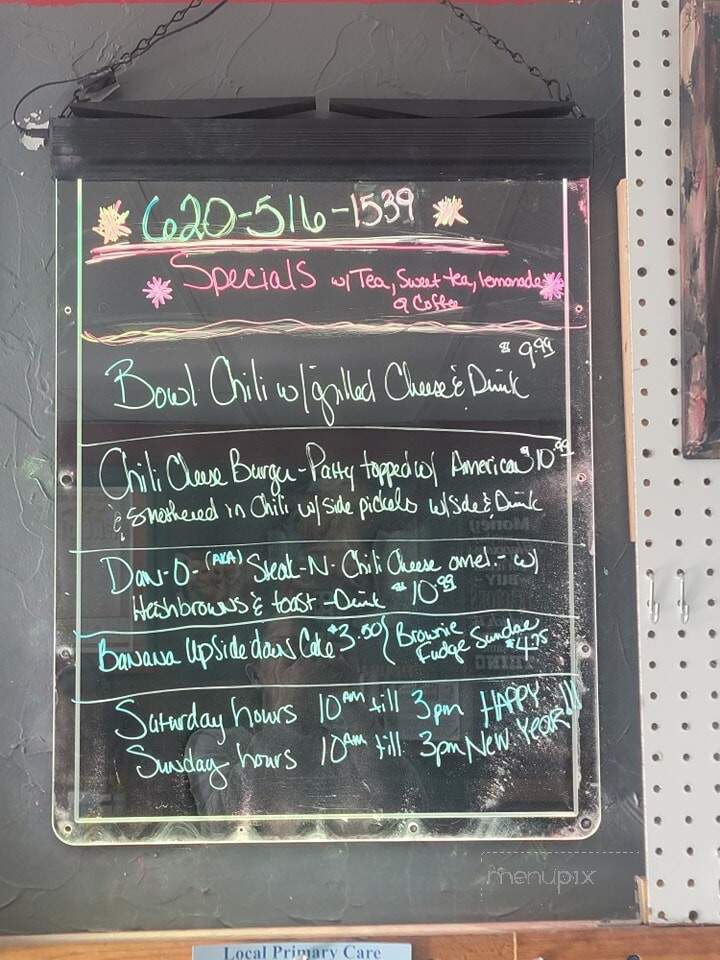 620-516-1539
Specials w/ Tea, Sweet tea, lemonade
& Coffee
$9.99
Bowl Chili w/grilled Cheese & Drink
Chili Cheese Burger - Patty topped w/ American $10.99
& Smothered in Chili w/side pickels w/side & Drink
Daw-O- (AKA) Steak-N-Chili Cheese omel.- w/
Hashbrowns & toast - Drink $10.99
Banana Upside down Cake $3.50 { Brownie
Fudge Sundae
$4.75
Saturday hours 10am till 3pm HAPPY
Sunday hours 10am till 3pm New YEAR!!!
menupix
Local Primary Care